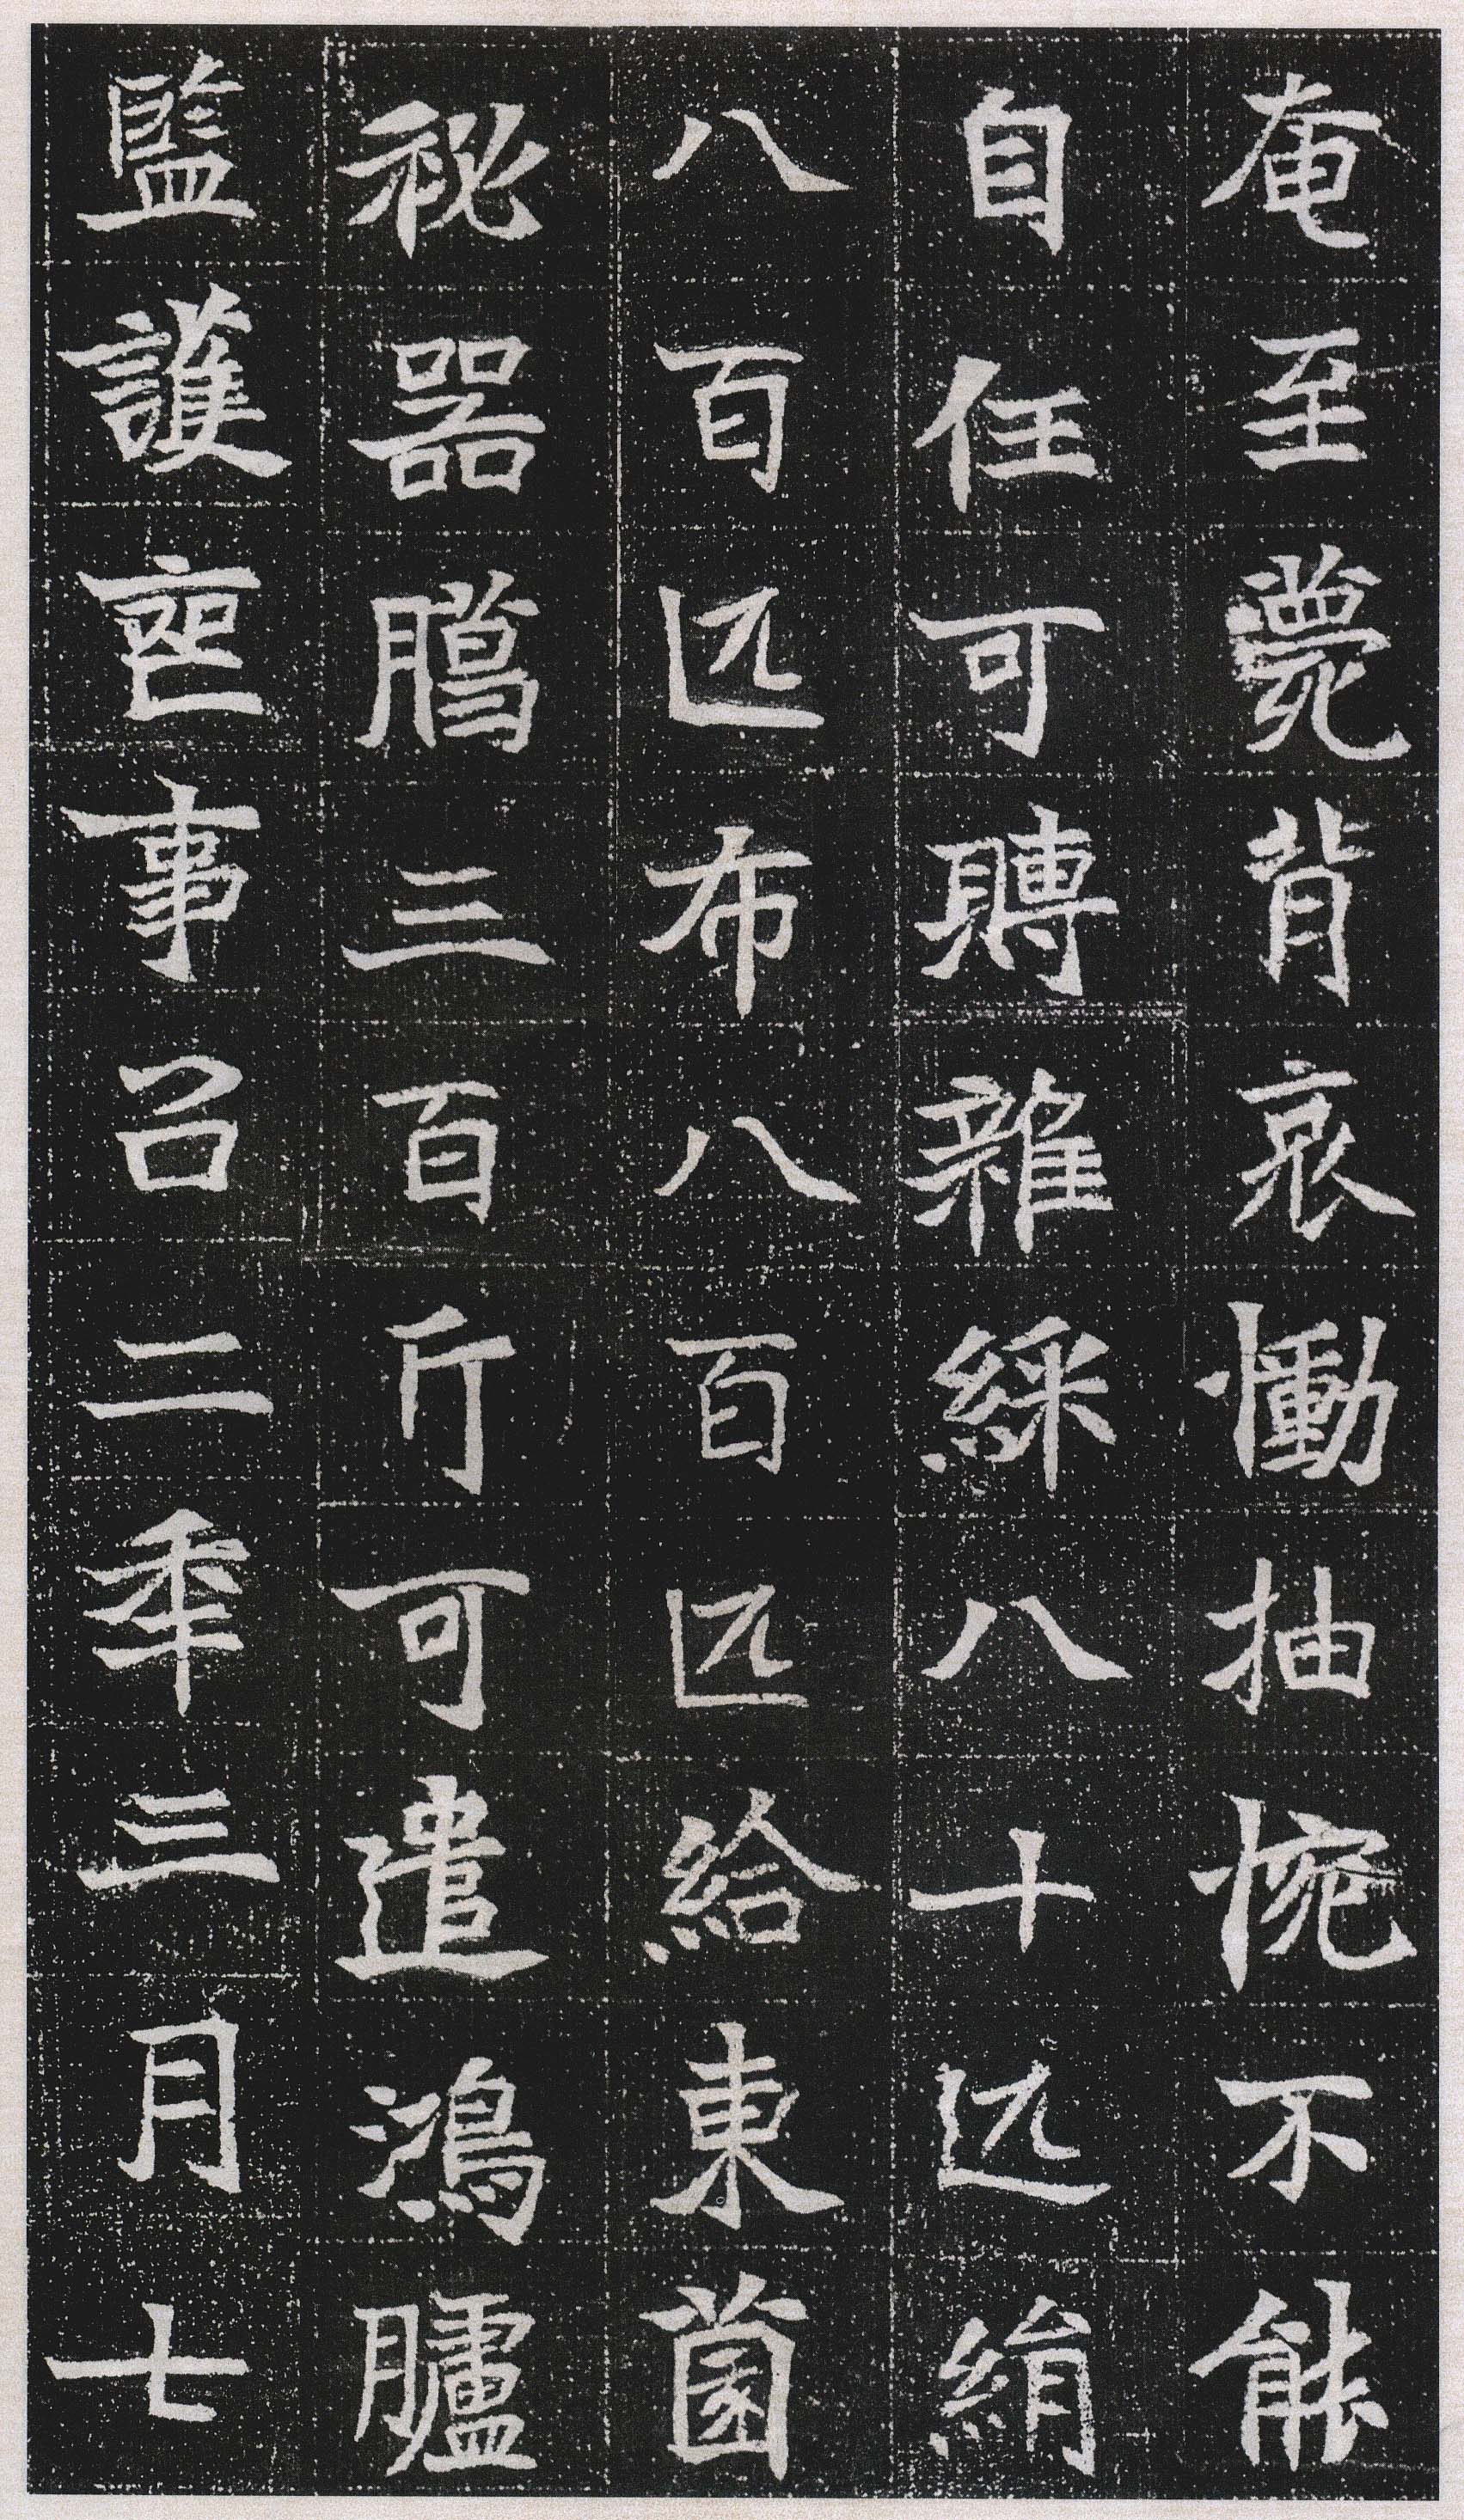 奄至薨背哀慟抽惋不能
自任可賻雜綵八十匹絹
八百匹布八百匹給東菌
祕器臈三百斤可遣鴻臚
監護喪事召二年三月七